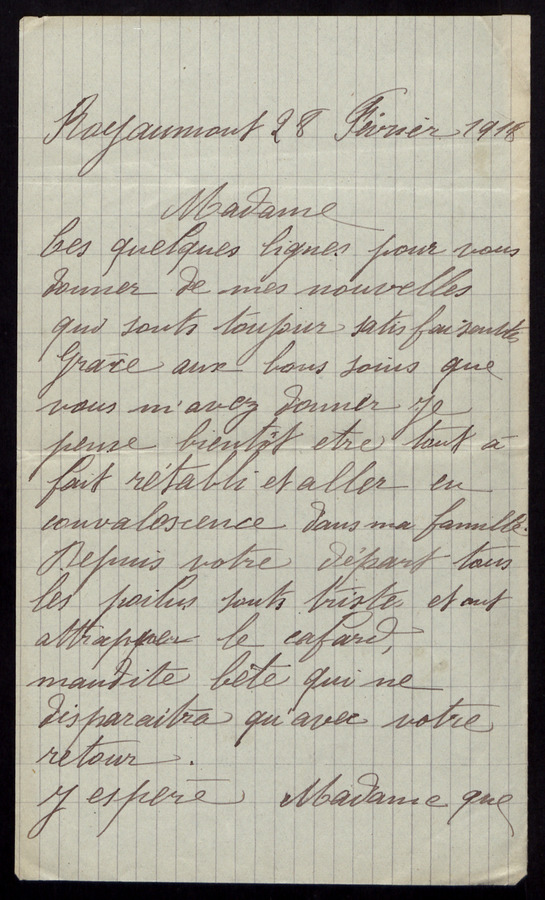 Royaumont 28 Février 1918
Madame
Ces quelques lignes pour vous
donner de mes nouvelles
qui sonts toujour satisfaisente
Grace aux bons soins que
vous m'avez donner Je
pense bientôt etre tout à
fait rétabli et aller en
convalescence dans ma famille.
Depuis votre départ tous
les poilus sonts triste et ont
attrapper le cafard,
maudite bête qui ne
disparaitra qu'avec votre
retour.
J espere Madame que